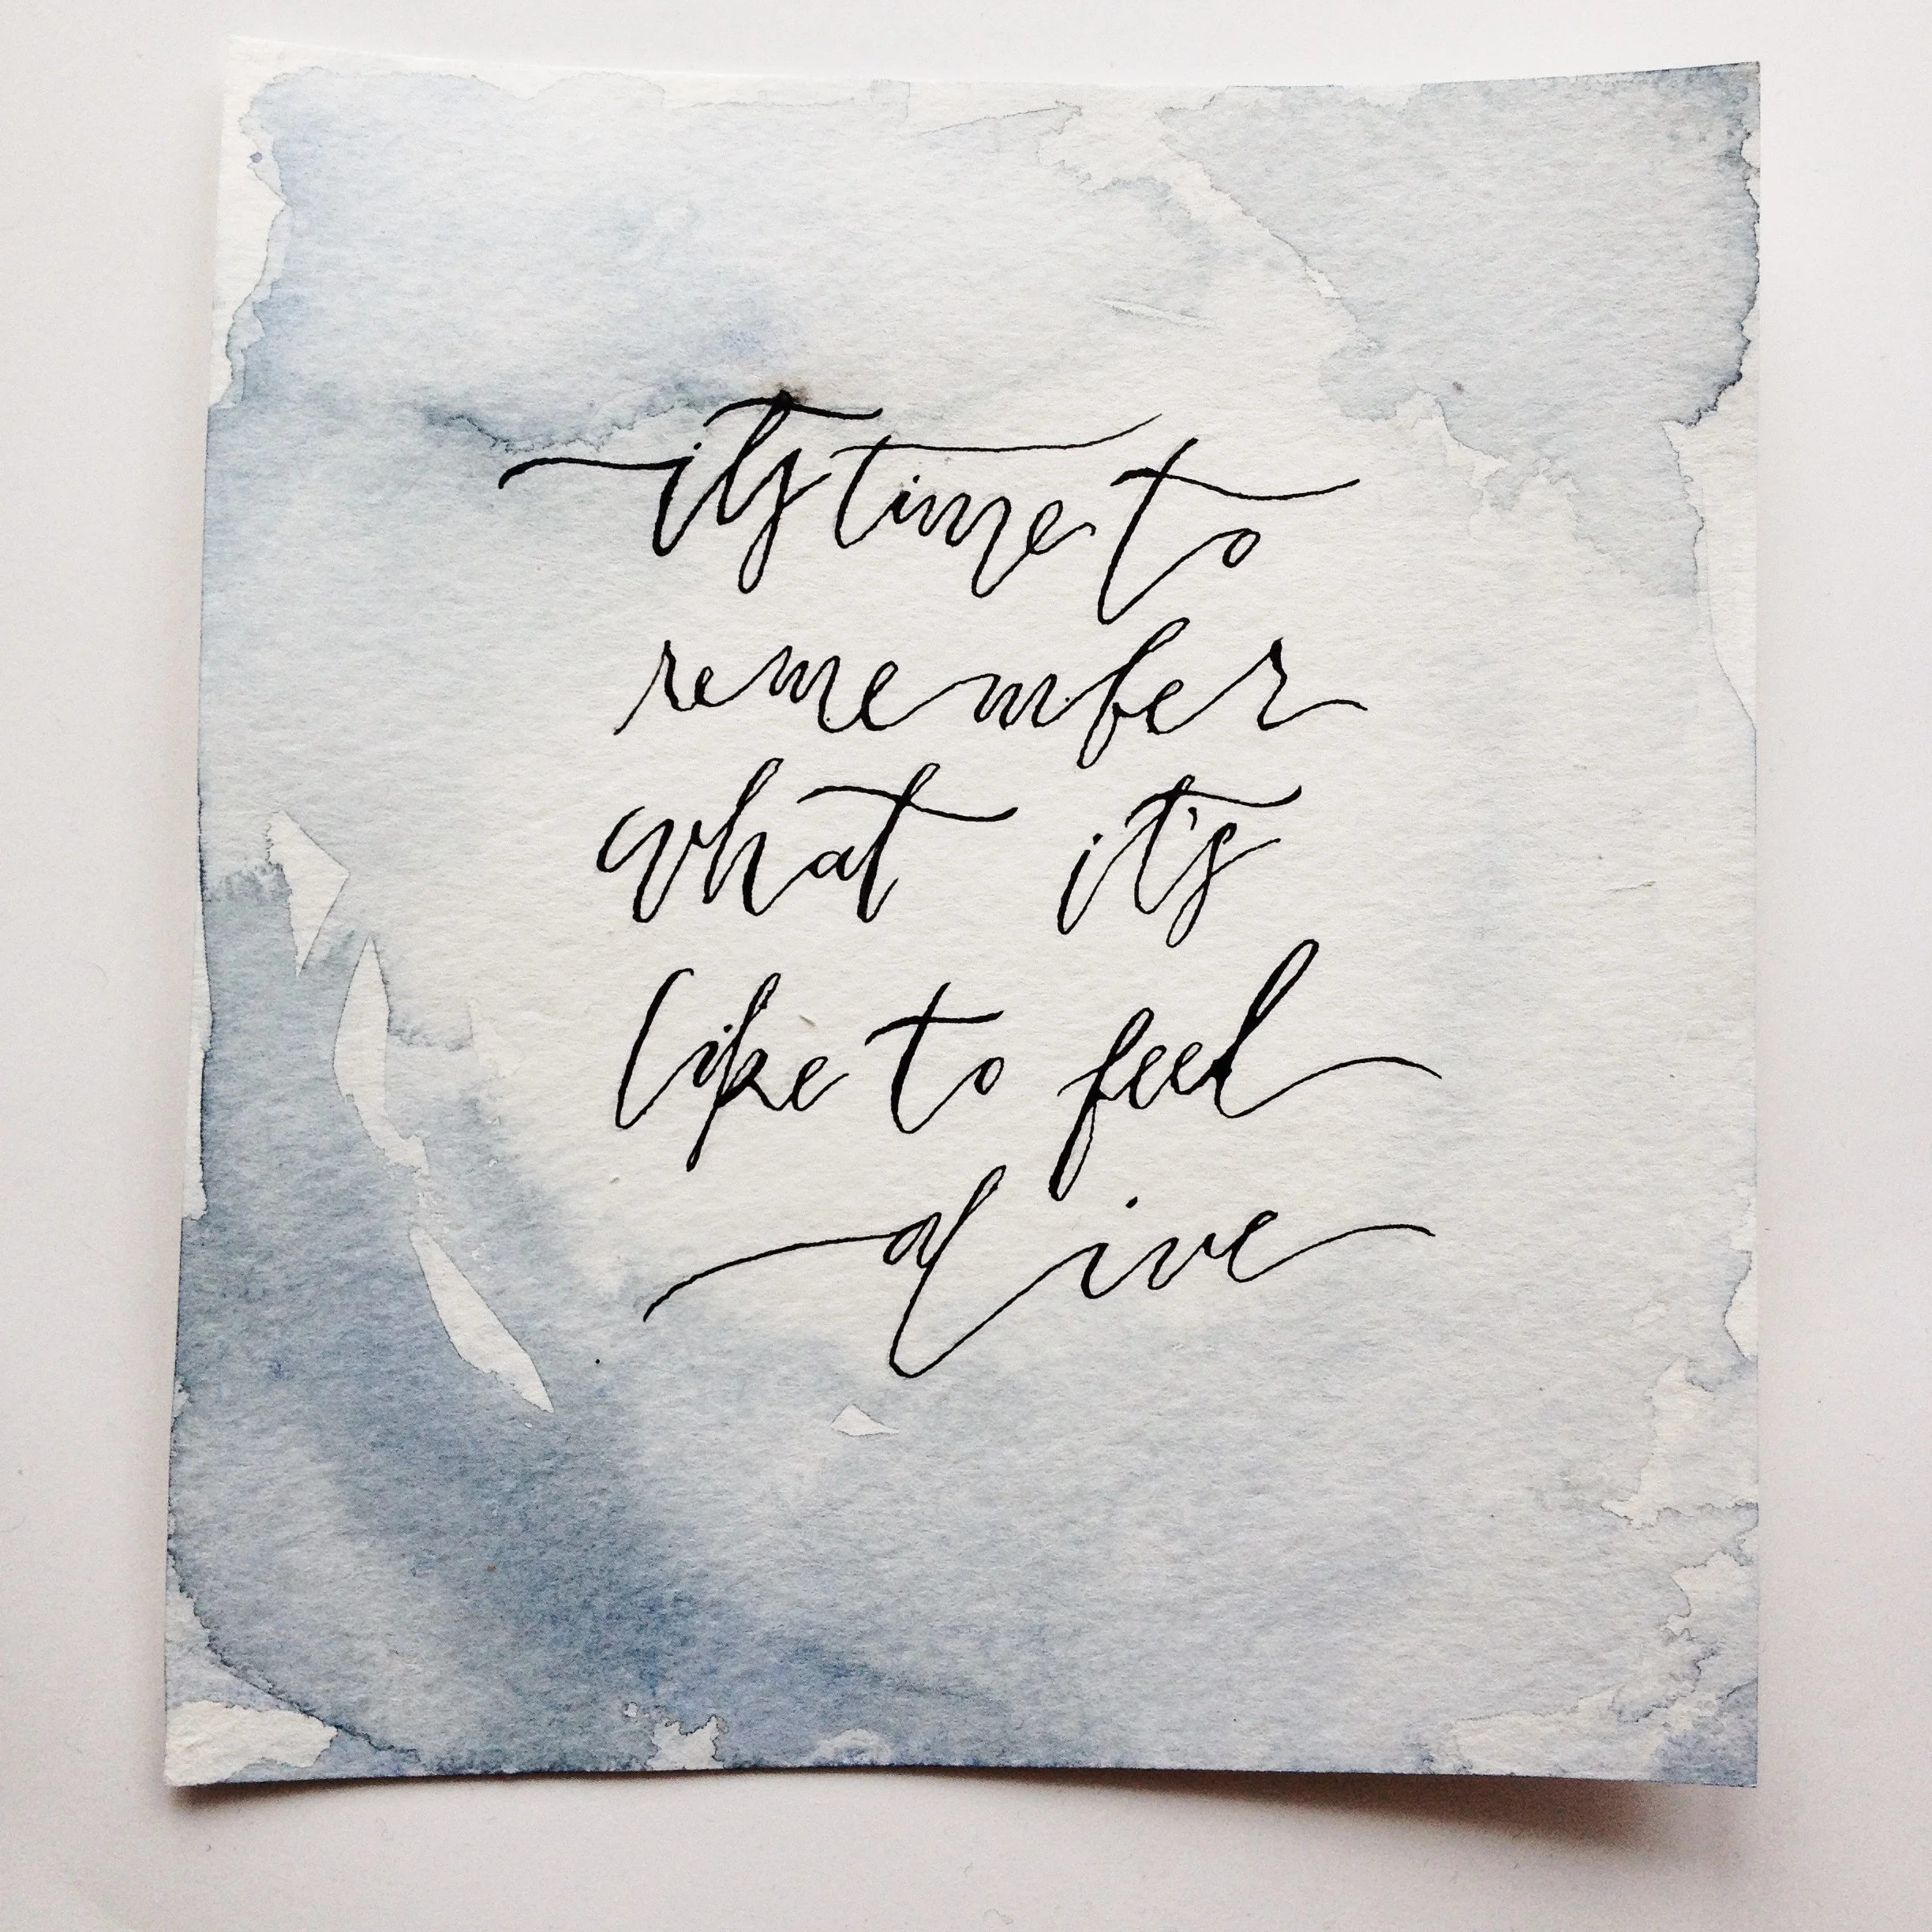 its time to
remember
what it's
like to feel
alive